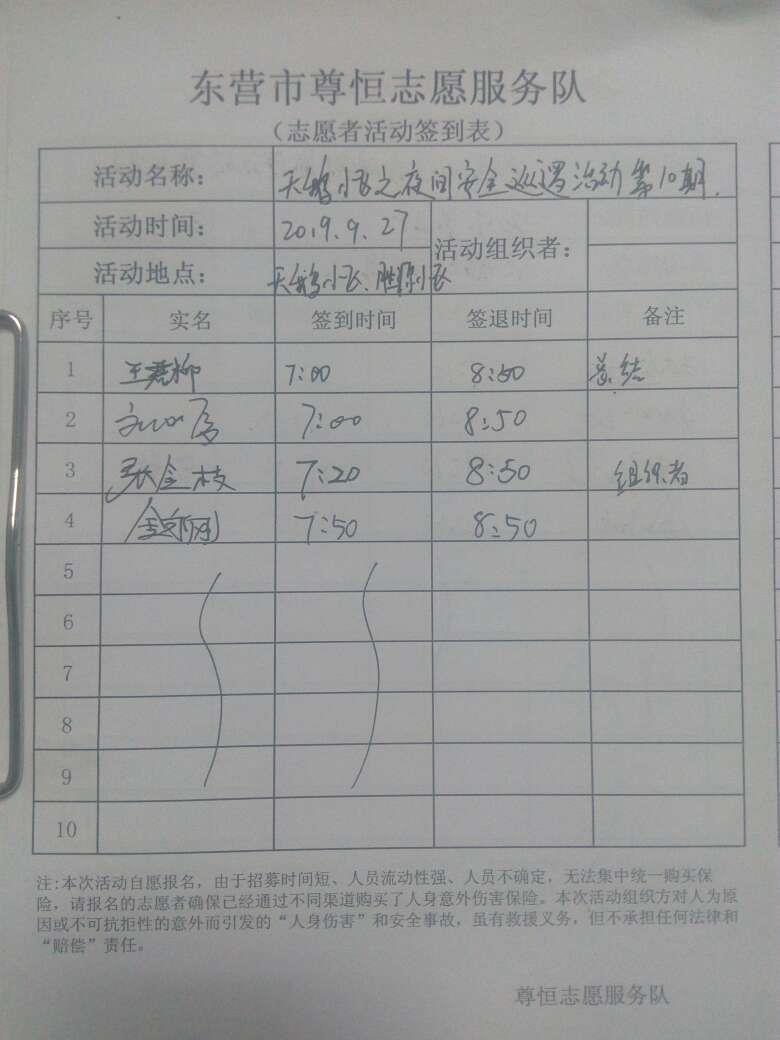 东营市尊恒志愿服务队
(志愿者活动签到表)
活动名称: 天鹅小飞之夜间安全巡逻活动第10期.
活动时间: 2019.9.27 活动组织者:
活动地点: 天鹅小飞、胜
序号 实名 签到时间 签退时间 备注
1 7:00 8:50 总结
2 7:00 8:50
3 张金枝 7:20 8:50 组织者
4 7:50 8:50
5
6
7
8
9
10
注:本次活动自愿报名，由于招募时间短、人员流动性强、人员不确定，无法集中统一购买保
险，请报名的志愿者确保已经通过不同渠道购买了人身意外伤害保险。本次活动组织方对人为原
因或不可抗拒性的意外而引发的“人身伤害”和安全事故，虽有救援义务，但不承担任何法律和
“赔偿”责任。
尊恒志愿服务队